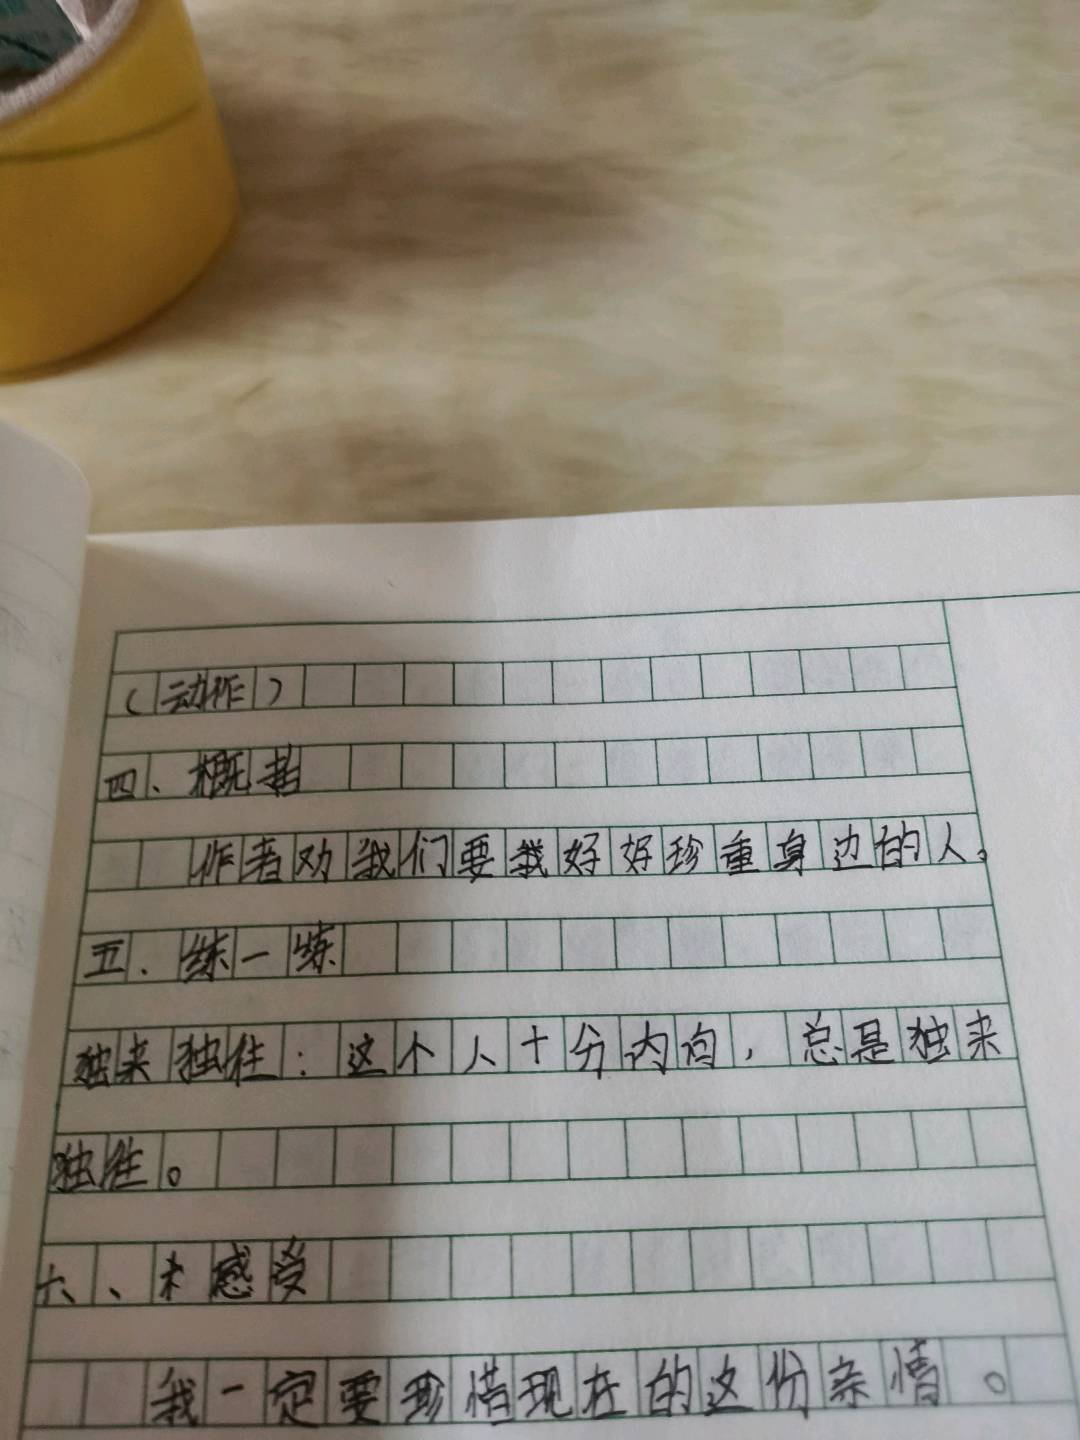 （动作）
四、概括
作者劝我们要我好好珍重身边的人。
五、练一练
独来独往：这个人十分内向，总是独来
独往。
六、感受
我一定要珍惜现在的这份亲情。